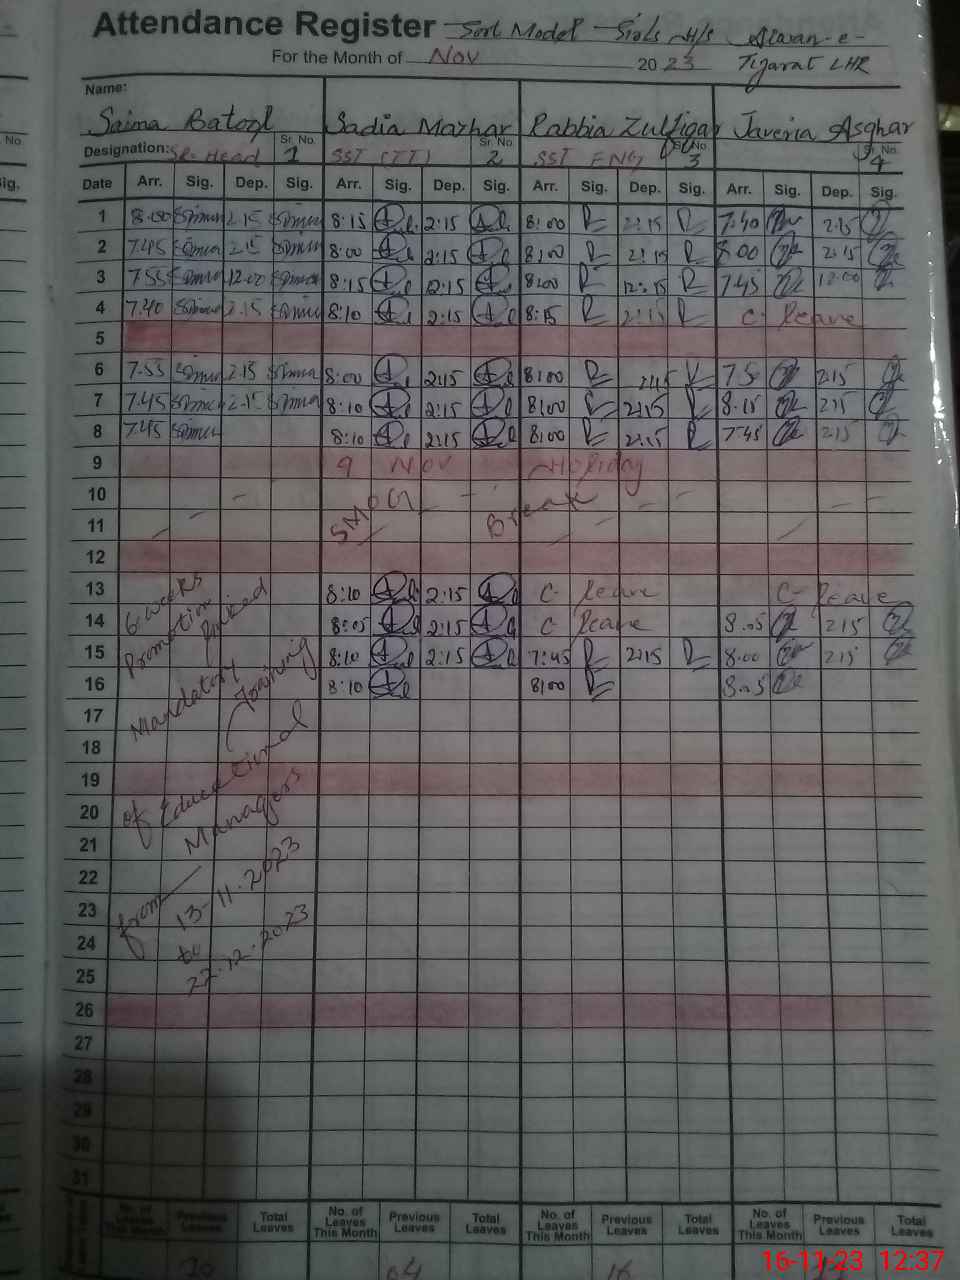 Attendance Register Model H/S Aiwan-e-
For the Month of Nov 2023 Tijarat LHR
Name:
Saima Batool Sadia Mazhar Rabbia Zulfiqar Javeria Asghar
Designation: Sr. Head Sr. No. 1 SST (IT) Sr. No. 2 SST ENG Sr. No. 3 Sr. No. 4
Date Arr. Sig. Dep. Sig. Arr. Sig. Dep. Sig. Arr. Sig. Dep. Sig. Arr. Sig. Dep. Sig.
1 8.00 2.15 8:15 2:15 8:00 2:15 7.40 2.15
2 7.45 2.15 8:00 2:15 8:00 2:15 8.00 2:15
3 7.55 12.00 8:15 12:15 8:00 12:15 7.45 12:00
4 7.40 2.15 8:10 2:15 8:15 2:15 C. leave
5
6 7.55 2.15 8:00 2:15 8:00 2:15 2.15
7 7.45 2.15 8:10 2:15 8:00 2:15 8.15 2:15
8 7.45 8:10 2:15 8:00 2:15 7.45 2.15
9 9 Nov Holiday
10 SMOG Break
11
12
13 8:10 2:15 C. leave C- leave
14 8:05 2:15 C leave 8.05 2.15
15 8:10 2:15 7:45 2:15 8.00 2.15
16 8:10 8:00 8.05
6-weeks
Promotion
linked
Mandatory
Training
of Educational
Managers
from
13-11-2023
to
22-12-2023
17
18
19
20
21
22
23
24
25
26
27
28
29
30
31
No. of Leaves This Month Previous Leaves Total Leaves No. of Leaves This Month Previous Leaves Total Leaves No. of Leaves This Month Previous Leaves Total Leaves No. of Leaves This Month Previous Leaves Total Leaves
04 16
16-11-23 12:37